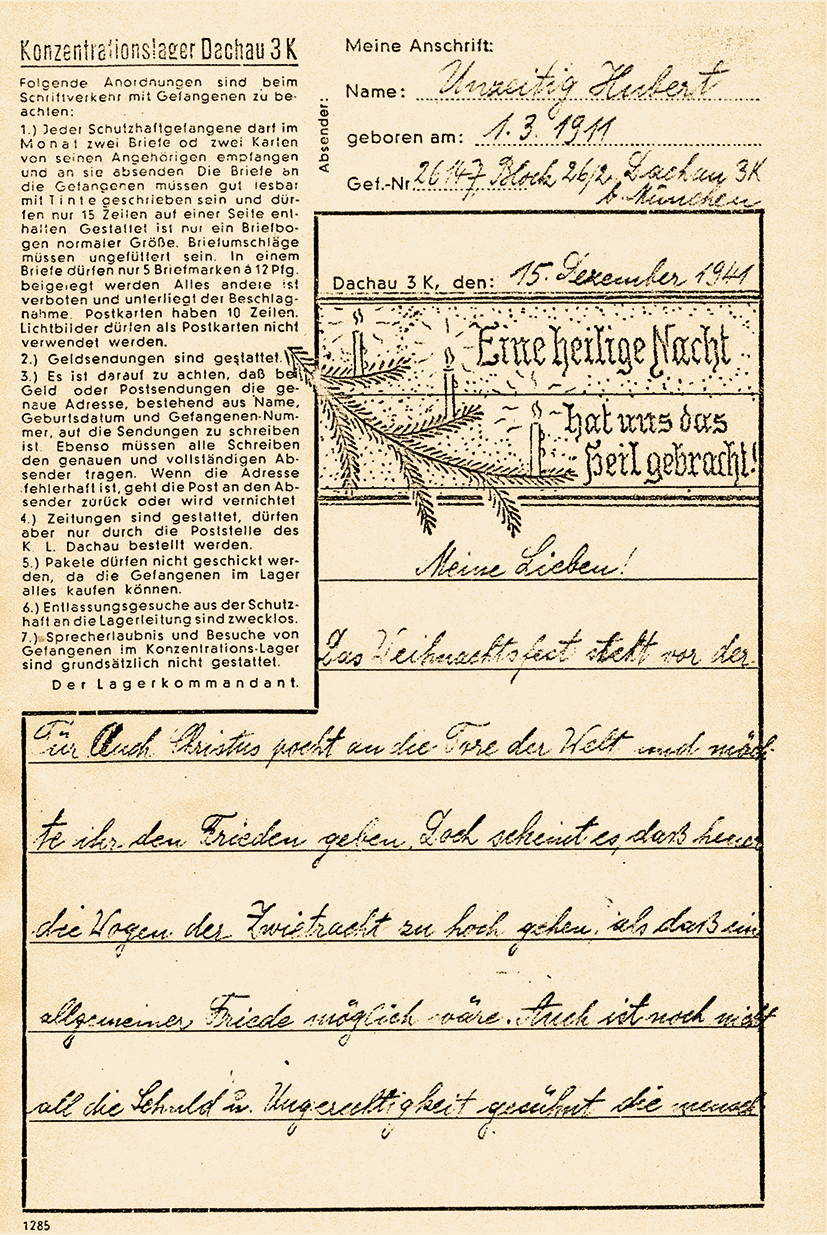 Konzentrationslager Dachau 3 K
Folgende Anordnungen sind beim
Schriftverkehr mit Gefangenen zu be-
achten:
1.) Jeder Schutzhaftgefangene darf im
Monat zwei Briefe od zwei Karten
von seinen Angehörigen empfangen
und an sie absenden Die Briefe an
die Gefangenen müssen gut lesbar
mit Tinte geschrieben sein und dür-
fen nur 15 Zeilen auf einer Seite ent-
halten. Gestattet ist nur ein Briefbo-
gen normaler Größe. Briefumschläge
müssen ungefüttert sein. In einem
Briefe dürfen nur 5 Briefmarken à 12 Pfg.
beigelegt werden Alles andere ist
verboten und unterliegt der Beschlag-
nahme. Postkarten haben 10 Zeilen.
Lichtbilder dürfen als Postkarten nicht
verwendet werden.
2.) Geldsendungen sind gestattet.
3.) Es ist darauf zu achten, daß bei
Geld oder Postsendungen die ge-
naue Adresse, bestehend aus Name,
Geburtsdatum und Gefangenen-Num-
mer, auf die Sendungen zu schreiben
ist. Ebenso müssen alle Schreiben
den genauen und vollständigen Ab-
sender tragen. Wenn die Adresse
fehlerhaft ist, geht die Post an den Ab-
sender zurück oder wird vernichtet
4.) Zeitungen sind gestattet, dürfen
aber nur durch die Poststelle des
K. L. Dachau bestellt werden.
5.) Pakete dürfen nicht geschickt wer-
den, da die Gefangenen im Lager
alles kaufen können.
6.) Entlassungsgesuche aus der Schutz-
haft an die Lagerleitung sind zwecklos.
7.) Sprecherlaubnis und Besuche von
Gefangenen im Konzentrations-Lager
sind grundsätzlich nicht gestattet.
Der Lagerkommandant.
Absender:
Meine Anschrift:
Name: Unzeitig Hubert
geboren am: 1. 3. 1911
Gef.-Nr 26147 Block 26/2, Dachau 3K
b. München
Dachau 3 K, den: 15. Dezember 1941
Eine heilige Nacht
hat uns das
Heil gebracht!
Meine Lieben!
Das Weihnachtsfest steht vor der
Tür Auch Christus pocht an die Tore der Welt und möch-
te ihr den Frieden geben. Doch scheint es, daß heuer
die Wogen der Zwietracht zu hoch gehen, als daß ein
allgemeiner Friede möglich wäre. Auch ist noch nicht
all die Schuld u. Ungerechtigkeit gesühnt die mensch-
1285